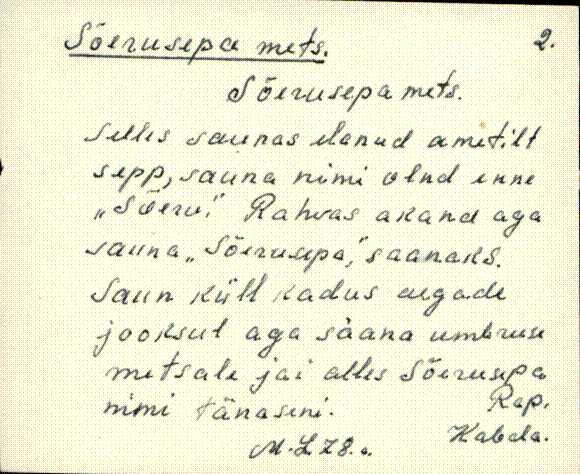 Sõerusepa mets.
2.
Sõerusepa mets.
Selles saunas elanud ametilt
sepp, sauna nimi olnd enne
„Sõeru". Rahvas akand aga
sauna „Sõerusepa", saanaks.
Saun küll kadus aegade
jooksul aga sääna umbruse
metsale jäi alles Sõerusepa
nimi tänaseni.
Rap.
Kabala.
M. L. 78. a.